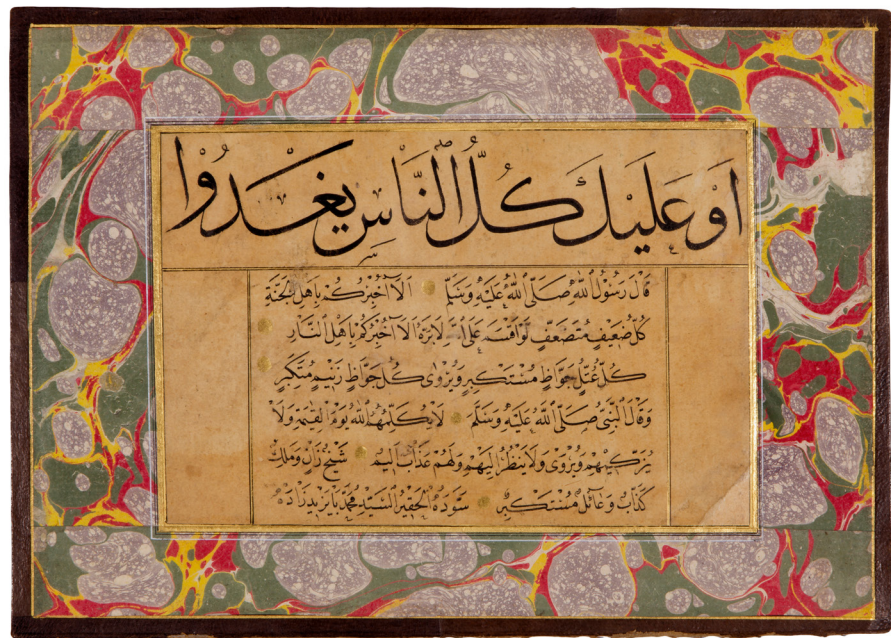 او عليك كل الناس يغدوا
قال رسول الله صلى الله عليه وسلم الا اخبركم باهل الجنة
كل ضعيف متضعف لو اقسم على الله لابره الا اخبركم باهل النار
كل عتل جواظ مستكبر ويروى كل جواظ زنيم متكبر
وقال النبي صلى الله عليه وسلم لا يكلمهم الله يوم القيمة ولا
يزكيهم ويروى ولا ينظر اليهم ولهم عذاب اليم شيخ زان وملك
كذاب وعائل مستكبر سوده الحقير السيد محمد بايزيدزاده